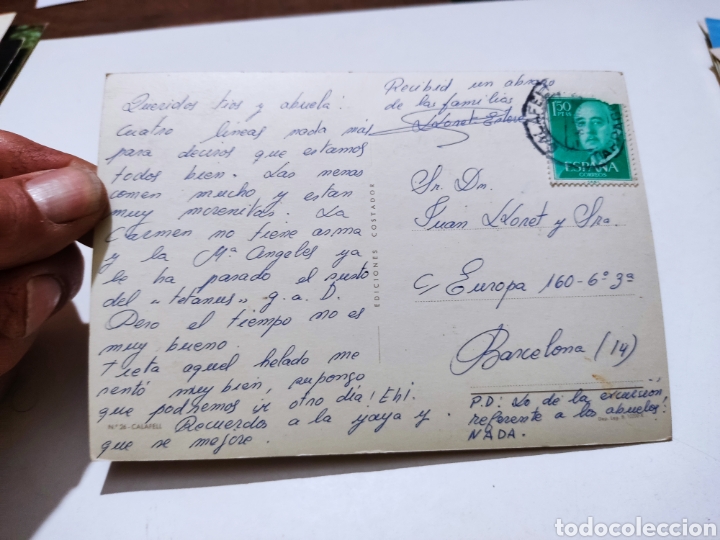 Queridos tios y abuela:
Cuatro lineas nada más
para deciros que estamos
todos bien. Las nenas
comen mucho y estan
muy morenitas. La
Carmen no tiene asma
y la Mª Angeles ya
le ha pasado el susto
del "tetanus" g. a. D.
Pero el tiempo no es
muy bueno.
Tieta aquel helado me
sentó muy bien, supongo
que podremos ir otro dia! Eh!.
Recuerdos a la yaya y
que se mejore.
Nº 26 - CALAFELL
EDICIONES COSTADOR
Recibid un abrazo
de las familias
Lloret
1'50
PTAS
ESPAÑA
CORREOS
Sr. Dn.
Juan Lloret y Sra.
C/ Europa 160-6º 3ª
Barcelona (14)
P.D: Lo de la excursión
referente a los abuelos:
NADA.
todocoleccion